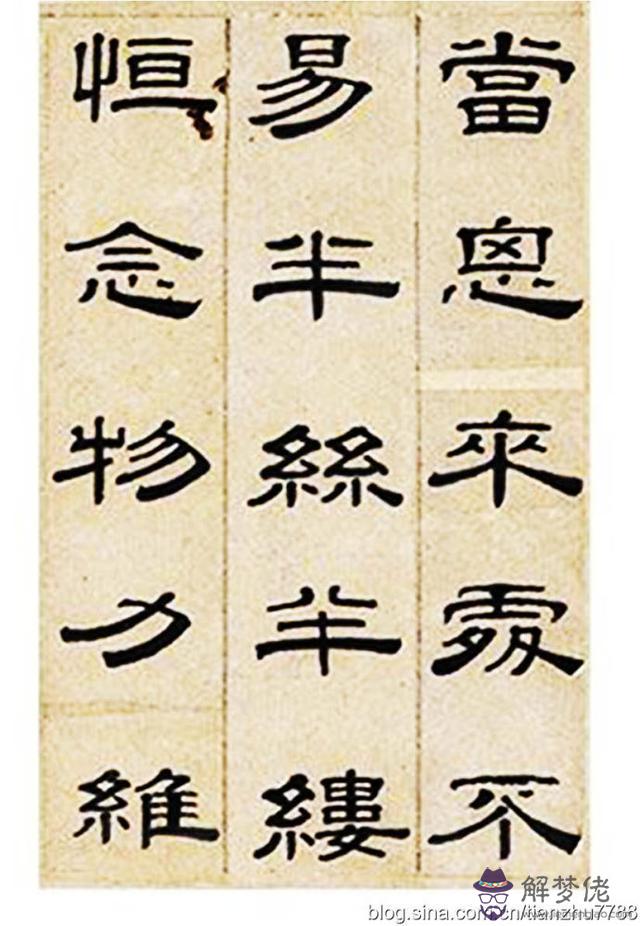 當思來處不
易半絲半縷
恒念物力維
解梦佬
blog.sina.com.cn/tianzhu7786